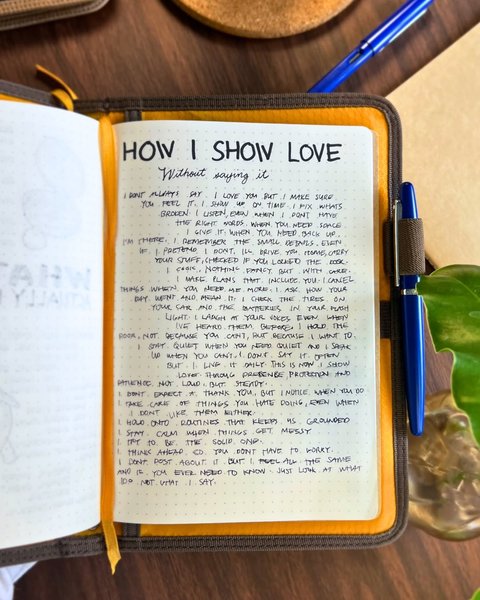 HOW I SHOW LOVE
Without saying it
I DON'T ALWAYS SAY I LOVE YOU BUT I MAKE SURE
YOU FEEL IT. I SHOW UP ON TIME. I FIX WHATS
BROKEN. I LISTEN, EVEN WHEN I DONT HAVE
THE RIGHT WORDS. WHEN YOU NEED SPACE
I GIVE IT. WHEN YOU NEED BACK UP.
I'M THERE. I REMEMBER THE SMALL DETAILS. EVEN
IF I PRETEND I DON'T. ILL DRIVE YOU HOME, CARRY
YOUR STUFF, CHECKED IF YOU LOCKED THE DOOR.
I COOK. NOTHING FANCY. BUT WITH CARE.
I MAKE PLANS THAT INCLUDE YOU. I CANCEL
THINGS WHEN YOU NEED ME MORE. I ASK HOW YOUR
DAY WENT AND MEAN IT. I CHECK THE TIRES ON
YOUR CAR AND THE BATTERIES IN YOUR FLASH
LIGHT. I LAUGH AT YOUR JOKES EVEN WHEN
I'VE HEARD THEM BEFORE. I HOLD THE
DOOR, NOT BECAUSE YOU CAN'T, BUT BECAUSE I WANT TO.
I STAY QUIET WHEN YOU NEED QUIET AND I SPEAK
UP WHEN YOU CAN'T. I DON'T SAY IT OFTEN
BUT I LIVE IT DAILY. THIS IS HOW I SHOW
LOVE. THROUG PRESENSE PROTECTION AND
PATIENCE. NOT LOUD. BUT STEADY.
I DON'T EXPECT A THANK YOU, BUT I NOTICE WHEN YOU DO
I TAKE CARE OF THINGS YOU HATE DOING, EVEN WHEN
I DON'T LIKE THEM EITHER.
I HOLD ONTO ROUTINES THAT KEEPS US GROUNDED
I STAY CALM WHEN THINGS GET MESSY
I TRY TO BE THE SOLID ONE.
I THINK AHEAD SO YOU DONT HAVE TO WORRY.
I DONT POST ABOUT IT. BUT I FEEL ALL THE SAME
AND IF YOU EVER NEED TO KNOW. JUST LOOK AT WHAT
I DO NOT WHAT I SAY.